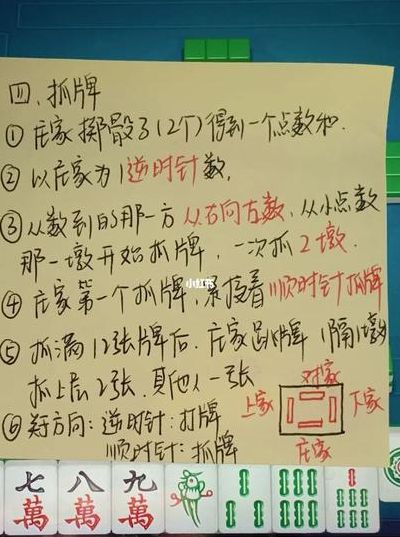 四、抓牌
① 庄家掷骰子(2个)得到一个点数和.
② 以庄家为1逆时针数,
③ 从数到的那一方从右向左数,从小点数
那一墩开始抓牌,一次抓2墩.
小红书
④ 庄家第一个抓牌,紧接着顺时针抓牌
⑤ 抓满12张牌后,庄家跳牌(隔1墩)
抓上层2张,其他人一张
⑥ 方向:逆时针:打牌
顺时针:抓牌
对家
上家 下家
庄家
七 八 九
萬 萬 萬